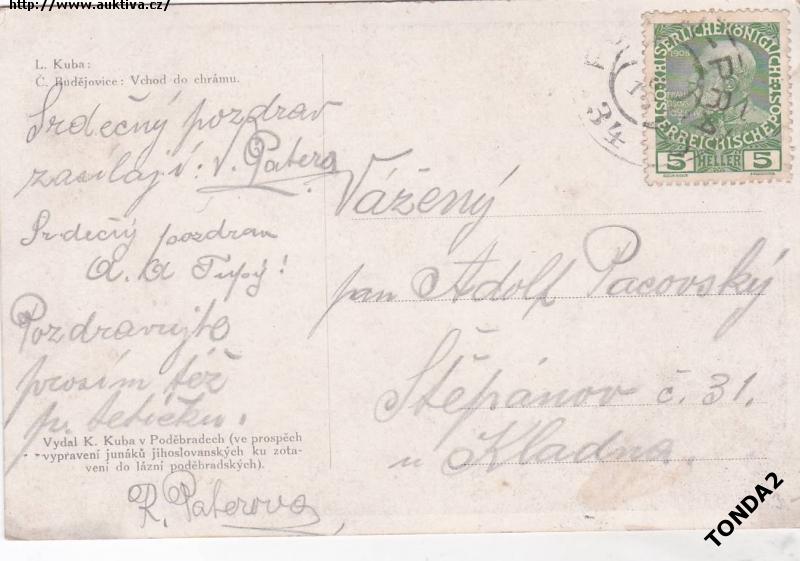 http://www.auktiva.cz/
L. Kuba:
Č. Budějovice: Vchod do chrámu.
Srdečný pozdrav
zasílají: V. Patera
Srdečný pozdrav
A. A Tupý!
Pozdravujte
prosím též
tetičku.
Vydal K. Kuba v Poděbradech (ve prospěch
vypravení junáků jihoslovanských ku zota-
vení do lázní poděbradských).
R. Paterova
1908
KAISERLICHE KÖNIGLICHE
ÖSTERREICHISCHE POST
5 HELLER 5
34
Vážený
pan Adolf Pacovský
Štěpánov č. 31.
u Kladna.
TONDA2